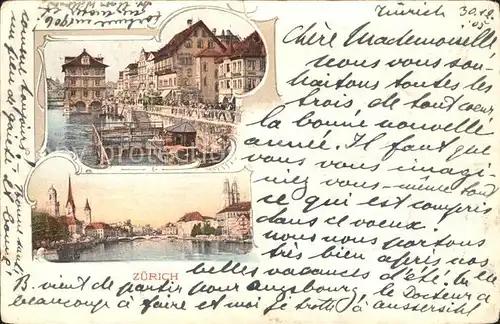 Zürich 30.12.05
Chère Mademoiselle
nous vous sou-
haitons toutes les
trois de tout coeur
la bonne nouvelle
année. Il faut que
vous vous imagi-
niez vous-même tout
ce qui est compris
dans ce voeux.
nous nous portons
très bien après nos
belles vacances d'été. la
B. vient de partir pour Augsbourg, le Docteur a
beaucoup à faire et moi je trotte à Aussersihl
toujours
un peu de gaieté et
bonne santé
ZÜRICH